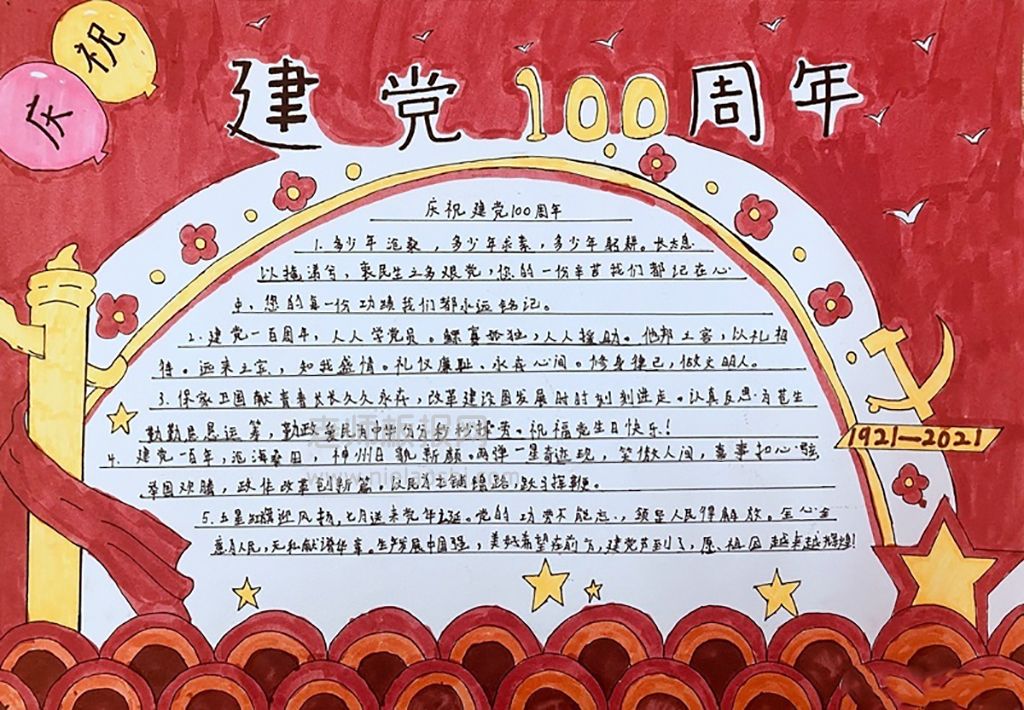 庆祝
建党100周年
庆祝建党100周年
1.多少年沧桑，多少年求索，多少年躬耕。长太息
以掩涕兮，哀民生之多艰党，您的一份辛苦我们都记在心
中，您的每一份功绩我们都永远铭记。
2.建党一百周年，人人学党员。鳏寡孤独，人人援助。他邦之客，以礼相
待。远来之宾，知我盛情。礼仪廉耻、永存心间。修身律己，做文明人。
3.保家卫国献青春长长久久永存，改革建设图发展时时刻刻进走。认真反思为苍生
勤勤恳恳运筹，勤政爱民。祝福党生日快乐！
4.建党一百年，沧海桑田，神州日貌新颜。两弹一星奇迹现，笑傲人间，喜事扣心弦
举国欢腾，政作改革创新篇。以民为主铺锦路，跃马挥鞭。
5.五星红旗迎风朝，七月送来党年。党的功劳不能忘，领导人民得解放。全心全
意为人民，无私献诸华章。生产发展中国强，美好希望在前方，建党节到了，愿祖国越来越辉煌！
1921—2021
老师板报网